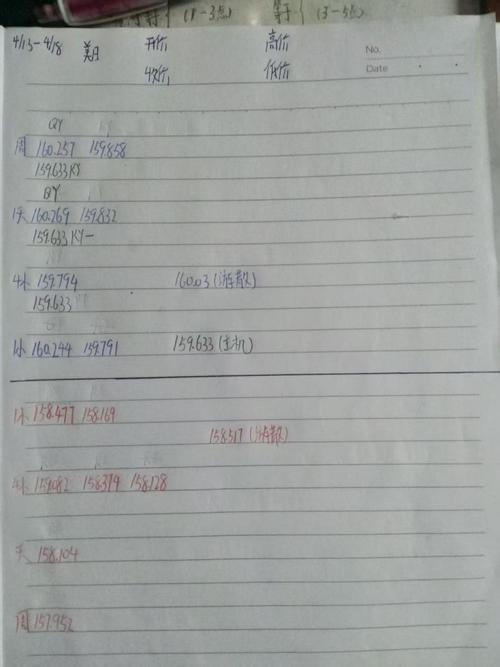 (1-3点) 等于 (3-5点)
4/13-4/18 美日 开价 高价
No.
收价 低价
Date
QY
周 160.257 159.858
159.633 KY
QY
天 160.269 159.832
159.633 KY-
4小 159.794 160.03 (游散)
159.633
1小 160.244 159.791 159.633 (主机)
1小 158.477 158.169
158.517 (游散)
4小 159.082 158.379 158.128
天 158.104
周 157.952